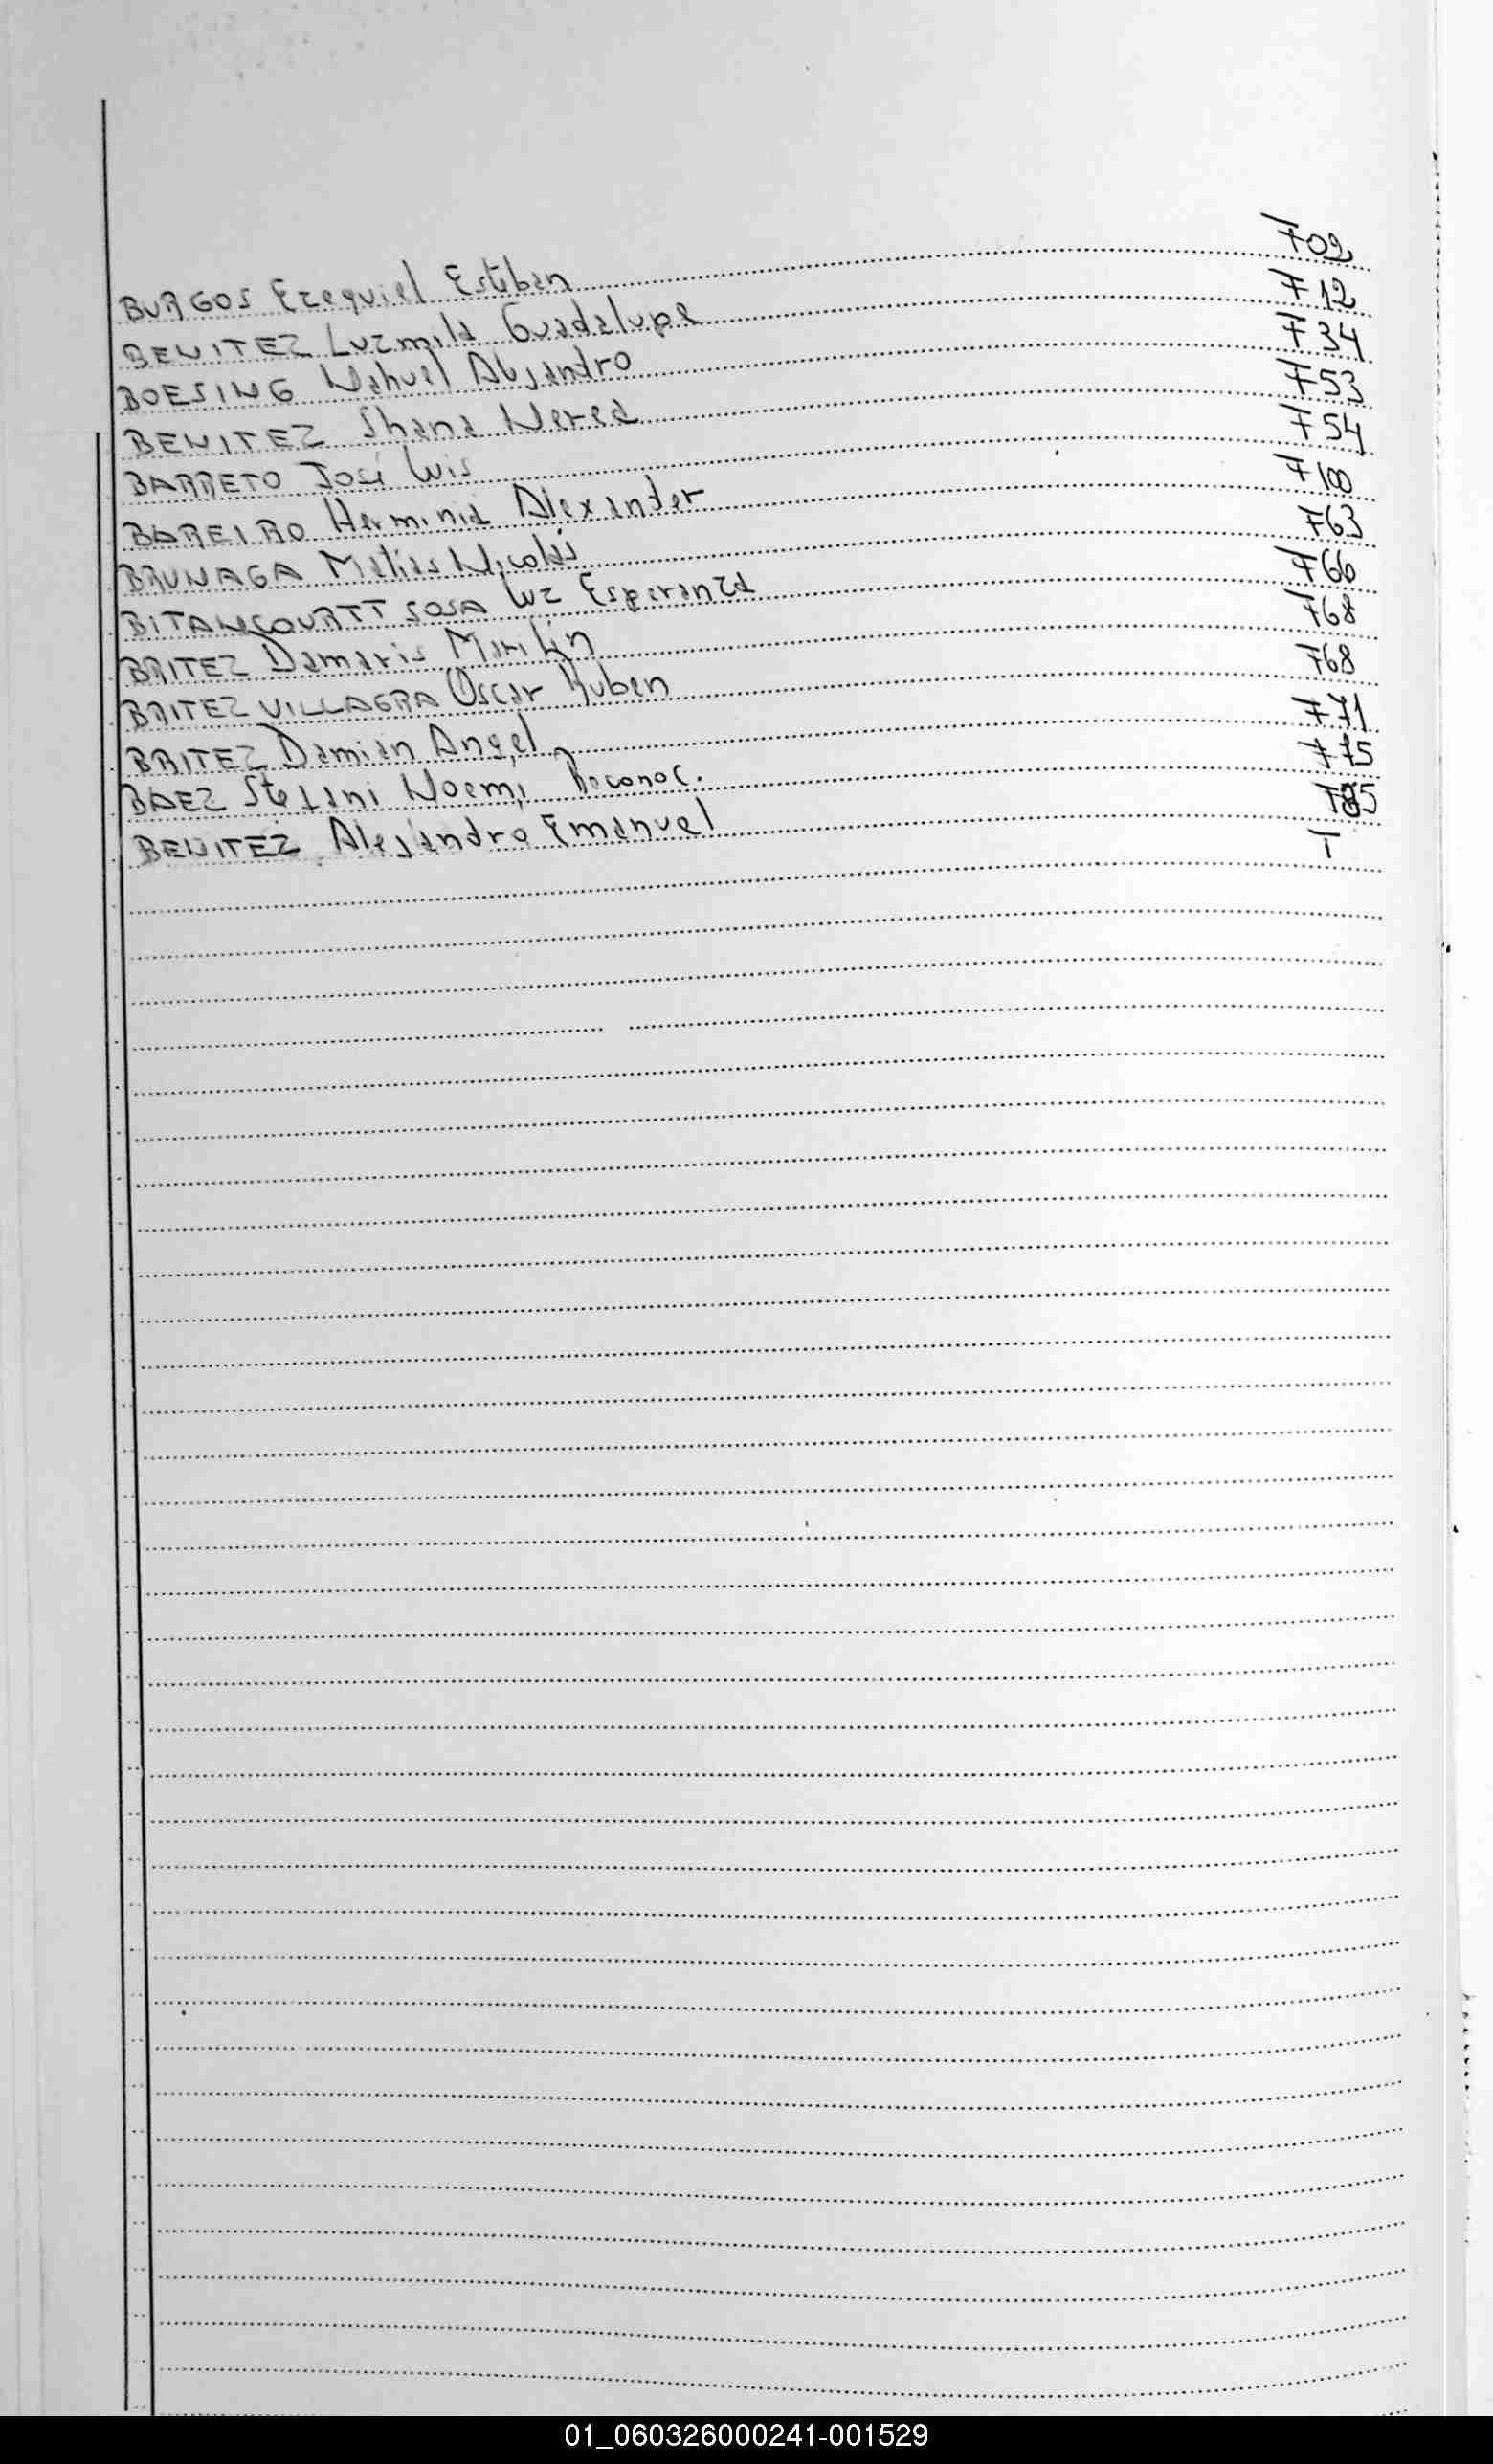 BURGOS Ezequiel Esteban 702
BENITEZ Luzmila Guadalupe 712
BOESING Nahuel Alejandro 734
BENITEZ Shana Nered 753
BARRETO José Luis 754
BAREIRO Herminia Alexander 7100
BRUNAGA Matias Nicolás 763
BITANCOURTT SOSA Luz Esperanza 766
BRITEZ Damaris Marilin 768
BRITEZ VILLAGRA Oscar Ruben 768
BRITEZ Damian Angel 771
BAEZ Stefani Noemi Reconoc. 775
BENITEZ Alejandro Emanuel
01_060326000241-001529